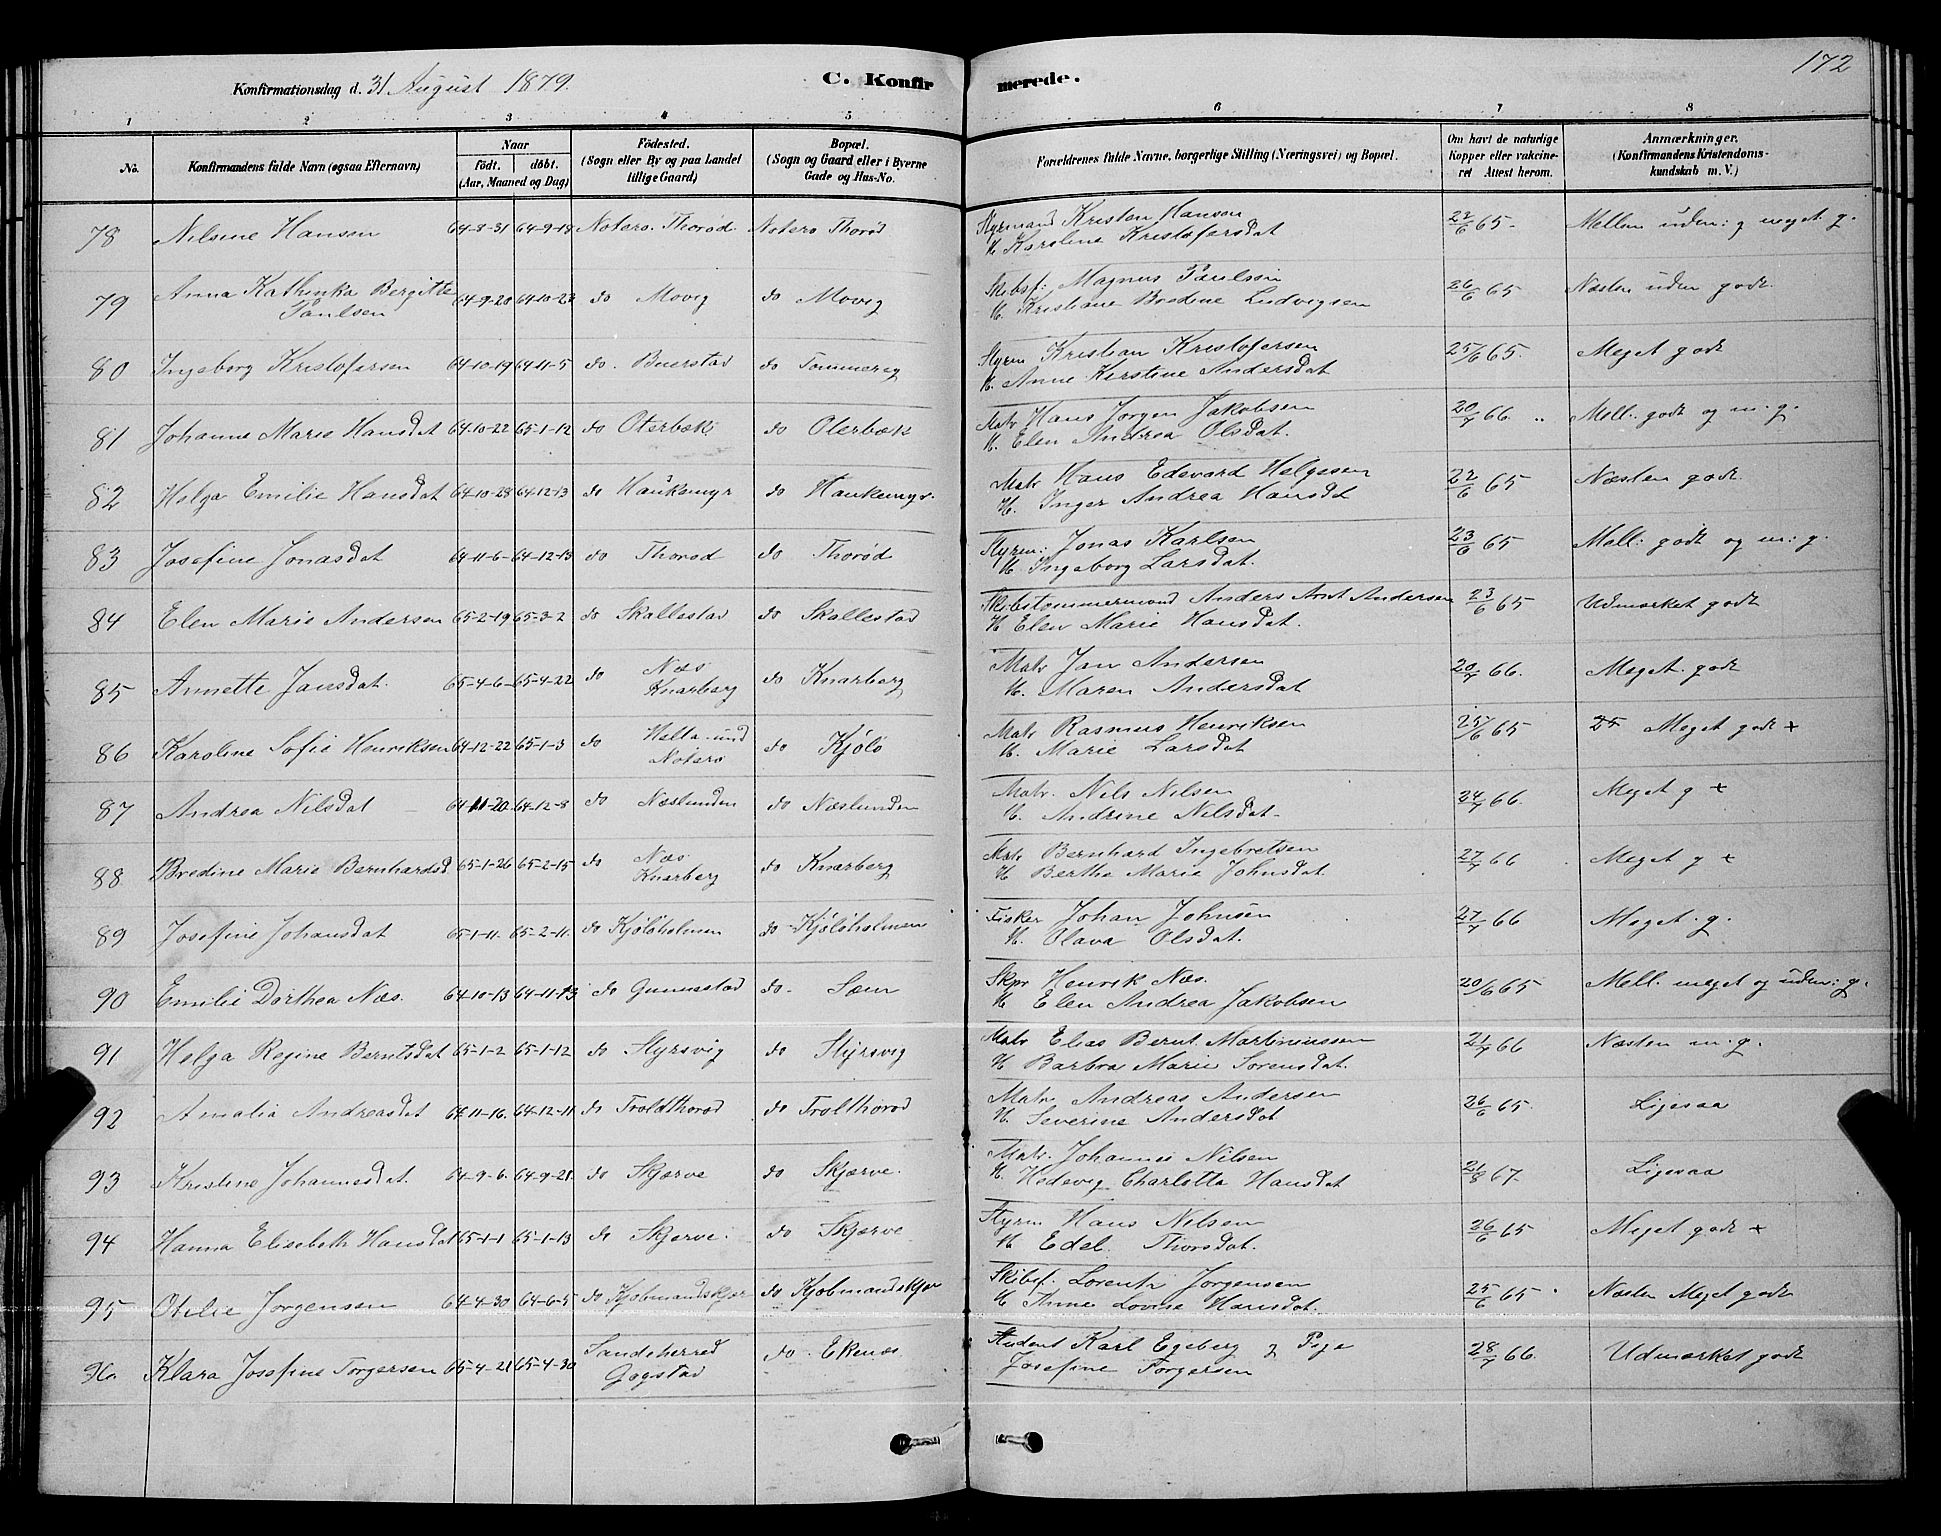 172
Konfirmationsdag d. 31 August 1879. C. Konfirmerede.
1 2 3 4 5 6 7 8
No. Konfirmandens fulde Navn (ogsaa Efternavn) Naar født. døbt. (Aar, Maaned og Dag) Fødested. (Sogn eller By og paa Landet tillige Gaard) Bopæl. (Sogn og Gaard eller i Byerne Gade og Hus-No. Forældrenes fulde Navne, borgerlige Stilling (Næringsvei) og Bopæl. Om havt de naturlige Kopper eller vakcineret Attest herom. Anmærkninger. (Konfirmandens Kristendomskundskab m. V.)
78 Nilsine Hansen 64-8-31 64-9-18 Noterø. Thorød. Noterø Thorød Styrmand Kristen Hansen 22/6 65- Mellem uden: g meget g.
H. Karoline Kristofersdat
79 Anna Kathinka Bergitte 64-9-20 64-10-23 do Movig do Movig Skibsf: Magnus Paulsen 26/6 65 Næsten uden godt.
Paulsen H. Kristiane Bredine Ludvigsen
80 Ingeborg Kristofersen 64-10-19 64-11-5 do. Buerstad do Tommerng Styrm Kristian Kristofersen 25/6 65. Meget godt
H. Anne Kirstine Andersdat
81 Johanne Marie Hansdat 64-10-22 65-1-12 do Oterbæk do Oterbæk Matr Hans Jørgen Jakobsen 20/7 66 „ Mell. godt og m. g.
H. Elen Andrea Olsdat.
82 Helga Emilie Hansdat 64-10-28 64-12-13 do Haukemyr do Haukemyr. Matr Hans Edevard Helgesen 22/6 65 Næsten godt.
H. Inger Andrea Hansdt
83 Josefine Jonasdat 64-11-6- 64-12-13 do Thorød do Thorød Styrm: Jonas Karlsen 23/6 65 Mell: godt og m: g.
H. Ingeborg Larsdat.
84 Elen Marie Andersen 65-2-19 65-3-2 do Skallestad do Skallestad Skibstømmermand Anders Arnt Andersen 23/6 65 Udmærket godt
H Elen Marie Hansdat.
85 Annette Jansdat. 65-4-6- 65-4-22 do Næs Knarberg do Knarberg Matr Jan Andersen 20/7 66. Meget. godt
H. Maren Andersdat
86 Karoline Sofie Henriksen 64-12-22 65-1-3 do Nøterø do Kjølø Matr Rasmus Henriksen 25/6 65 Meget godt +
H. Marie Larsdat
87 Andrea Nilsdat 64-11-20 64-12-8 do Næslunden do Næslunden Matr. Nils Nilsen 24/7 66. Meget g +
H. Andrine Nilsdat-
88 Bredine Marie Bernhardsd. 65-1-26 65-2-15 do Næs Knarberg do Knarberg Matr Bernhard Ingebretsen 27/7 66 Meget g +
H Berthe Marie Johnsdat
89 Josefine Johansdat 65-1-11. 65-2-11. do Kjøløholmen do Kjøløholmen Fisker Johan Johnsen 27/7 66 Meget. g.
H. Olava Olsdat.
90 Emilie Dorthea Næs. 64-10-13 64-11-13 do Gunnestad do- Sæm Skpr Henrik Næs. 20/6 65 Mell. meget og uden: g.
H Elen Andrea Jakobsen
91 Helga Regine Berntsdat 65-1-2 65-1-12 do Styrsvig do Styrsvig Matr Elias Bernt Martiniussen 21/7 66 Næsten m. g.
H Barbra Marie Sorensdat.
92 Amalia Andreasdat 64-11-16. 64-12-11 do Troldthorød do Trolthorød Matr Andreas Andersen 26/6 65. Ligesaa
H. Severine Andersdat
93 Kristine Johannesdat. 64-9-6. 64-9-21 do Skjærve do Skjærve. Matr. Johannes Nilsen 21/8 67- Ligesaa
H. Hedevig Charlotta Hansdat
94 Hanna Elisebeth Hansdat 65-1-1 65-1-13 do Skjærve. do Skjærve Styrm Hans Nilsen 26/6 65 Meget godt +
H Edel. Thorsdat.
95 Otilie Jorgensen 64-4-30 64-6-5 do Kjøbmandskjær do Kjøbmandskjær Skibsf. Lorentz Jorgensen 25/6 65. Næsten Meget godt
H Anne Lovise Hansdat.
96 Klara Josefine Torgersen 65-4-21 65-4-30 Sandeherred Gogstad do. Ekenæs Student Karl Egeberg og Pige 28/7 66. Udmærket godt
Josefine Torgersen